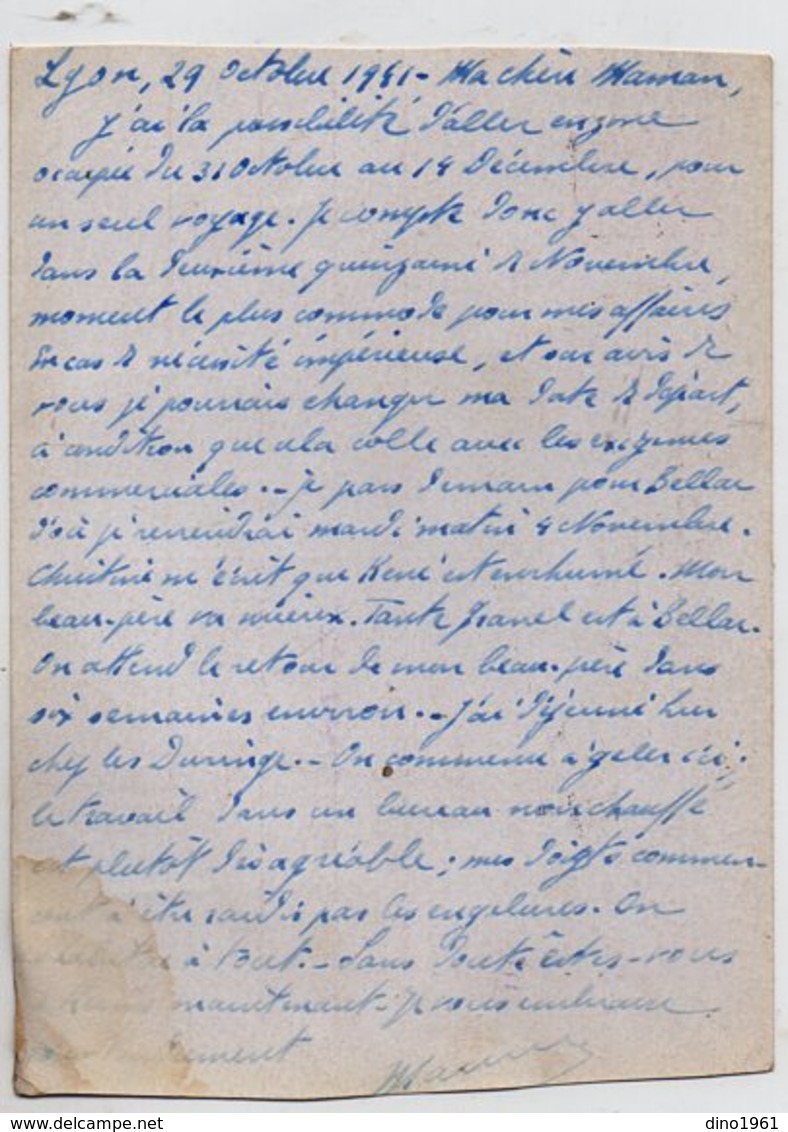 Lyon, 29 Octobre 1941 - Ma chère Maman,
J'ai la possibilité d'aller en zone
occupée du 31 Octobre au 14 Décembre, pour
un seul voyage. Je compte donc y aller
dans la deuxième quinzaine de Novembre,
moment le plus commode pour mes affaires
En cas de nécessité impérieuse, et sur avis de
vous je pourrais changer ma date de départ,
à condition que cela colle avec les exigences
commerciales. - Je pars demain pour Bellac
d'où je reviendrai mardi matin 4 Novembre.
Christine m'écrit que René est enrhumé. Mon
beau-père va mieux. Tante est à Bellac.
On attend le retour de mon beau-père dans
six semaines environ. - J'ai déjeuné hier
chez les Duringe. - On commence à geler ici ;
le travail dans un bureau non chauffé
est plutôt désagréable ; mes doigts commen-
cent à être raidis par les engelures. On
à tout. - Sans doute êtes-vous
maintenant. Je vous embrasse